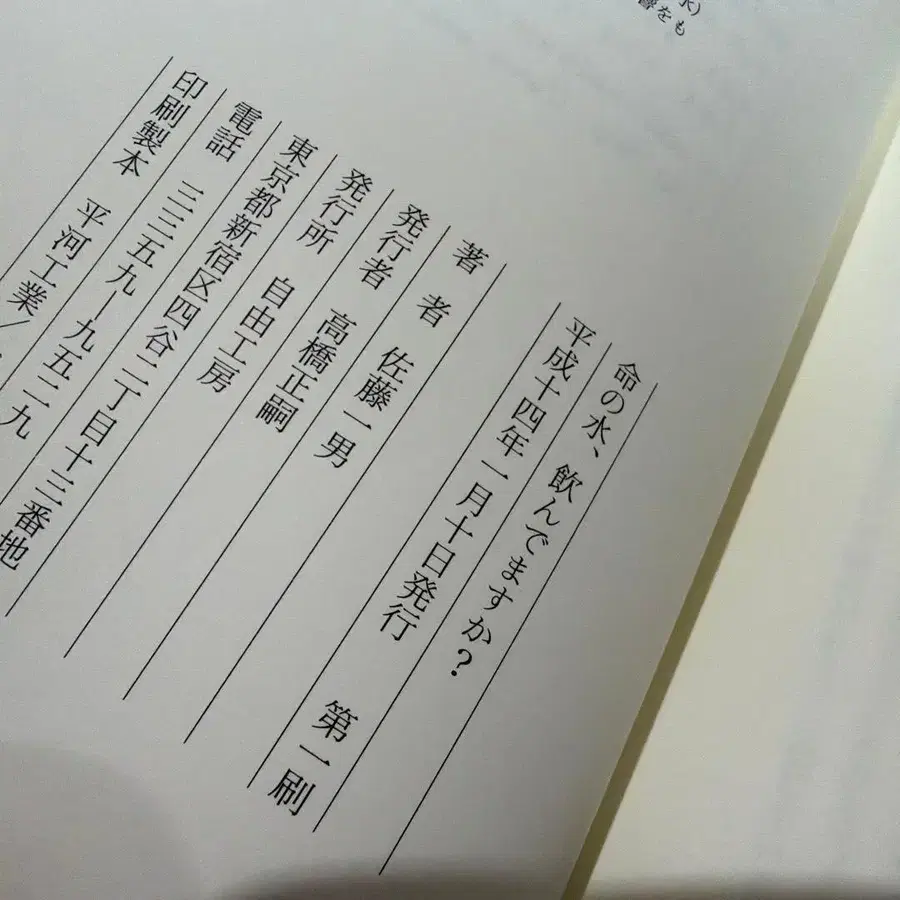 水)
響をも
命の水、飲んでますか?
平成十四年一月十日発行 第一刷
著者 佐藤一男
発行者 高橋正嗣
発行所 自由工房
東京都新宿区四谷二丁目十三番地
電話 三三五九ー九五二九
印刷製本 平河工業/